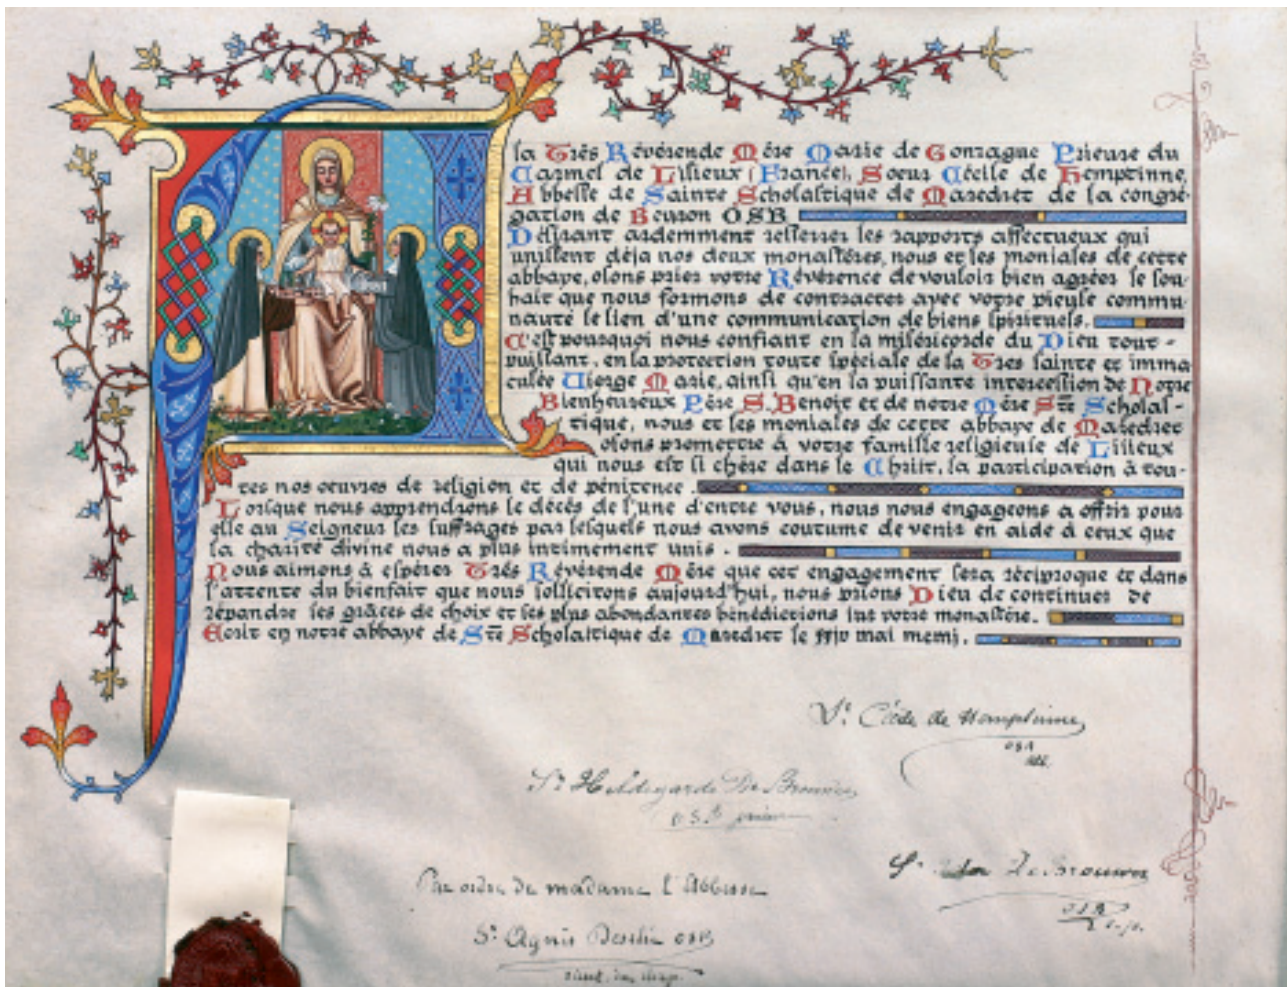 A la Très Révérende Mère Marie de Gonzague Prieure du
Carmel de Lisieux (France), Soeur Cécile de Hemptinne,
Abbesse de Sainte Scholastique de Maredret de la congré-
gation de Beuron OSB
Désirant ardemment resserrer les rapports affectueux qui
unissent déja nos deux monastères, nous et les moniales de cette
abbaye, osons prier votre Révérence de vouloir bien agréer le sou-
hait que nous formons de contracter avec votre pieuse commu-
nauté le lien d'une communication de biens spirituels.
C'est pourquoi nous confiant en la miséricorde du Dieu tout-
puissant, en la protection toute spéciale de la Très sainte et imma-
culée Vierge Marie, ainsi qu'en la puissante intercession de Notre
Bienheureux Père S. Benoit et de notre Mère Ste Scholas-
tique, nous et les moniales de cette abbaye de Maredret
osons promettre à votre famille religieuse de Lisieux
qui nous est si chère dans le Christ, la participation à tou-
tes nos oeuvres de religion et de pénitence.
Lorsque nous apprendrons le décès de l'une d'entre vous, nous nous engageons a offrir pour
elle au Seigneur les suffrages par lesquels nous avons coutume de venir en aide à ceux que
la charité divine nous a plus intimement unis.
Nous aimons à espérer Très Révérende Mère que cet engagement sera réciproque et dans
l'attente du bienfait que nous sollicitons aujourd'hui, nous prions Dieu de continuer de
répandre les grâces de choix et les plus abondantes bénédictions sur votre monastère.
Ecrit en notre abbaye de Ste Scholastique de Maredret le mai
Sr Cécile de Hemptinne
OSB
abb.
Sr Hildegarde De Brouwer
O S B
Sr De Brouwer
OSB
Par ordre de madame l'Abbesse
Sr Agnès OSB